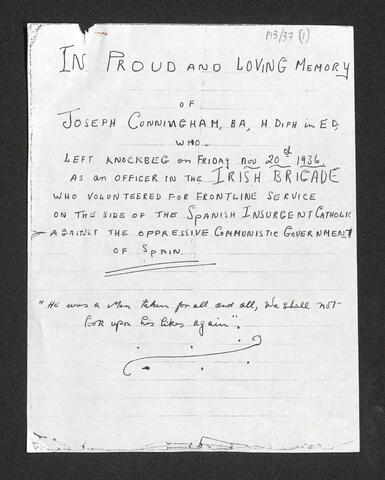 P13/37 (1)
IN PROUD AND LOVING MEMORY
OF
JOSEPH CUNNINGHAM, BA, H. DIPH in ED,
WHO
LEFT KNOCKBEG on FRIDAY NOV 20th 1936.
AS AN OFFICER IN THE IRISH BRIGADE
WHO VOLUNTEERED FOR FRONTLINE SERVICE
ON THE SIDE OF THE SPANISH INSURGENT CATHOLIC
AGAINST THE OPPRESSIVE COMMUNISTIC GOVERNMENT
OF SPAIN.
"HE was a Man taken for all and all, We shall not
look upon his likes again".